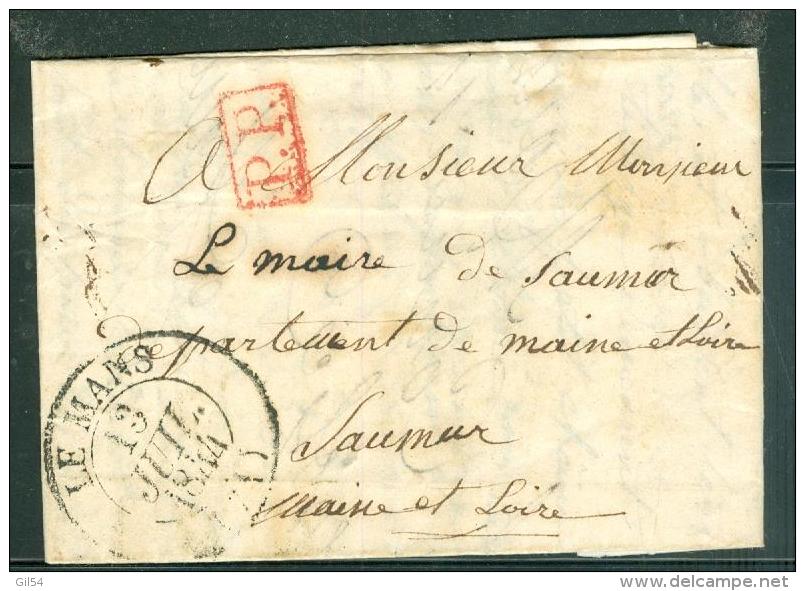 P.P.
A Monsieur Monsieur
Le maire de Saumur
departement de maine et Loire
Saumur
Maine et Loire
LE MANS
13
JUIL.
Gil54
delcampe.net